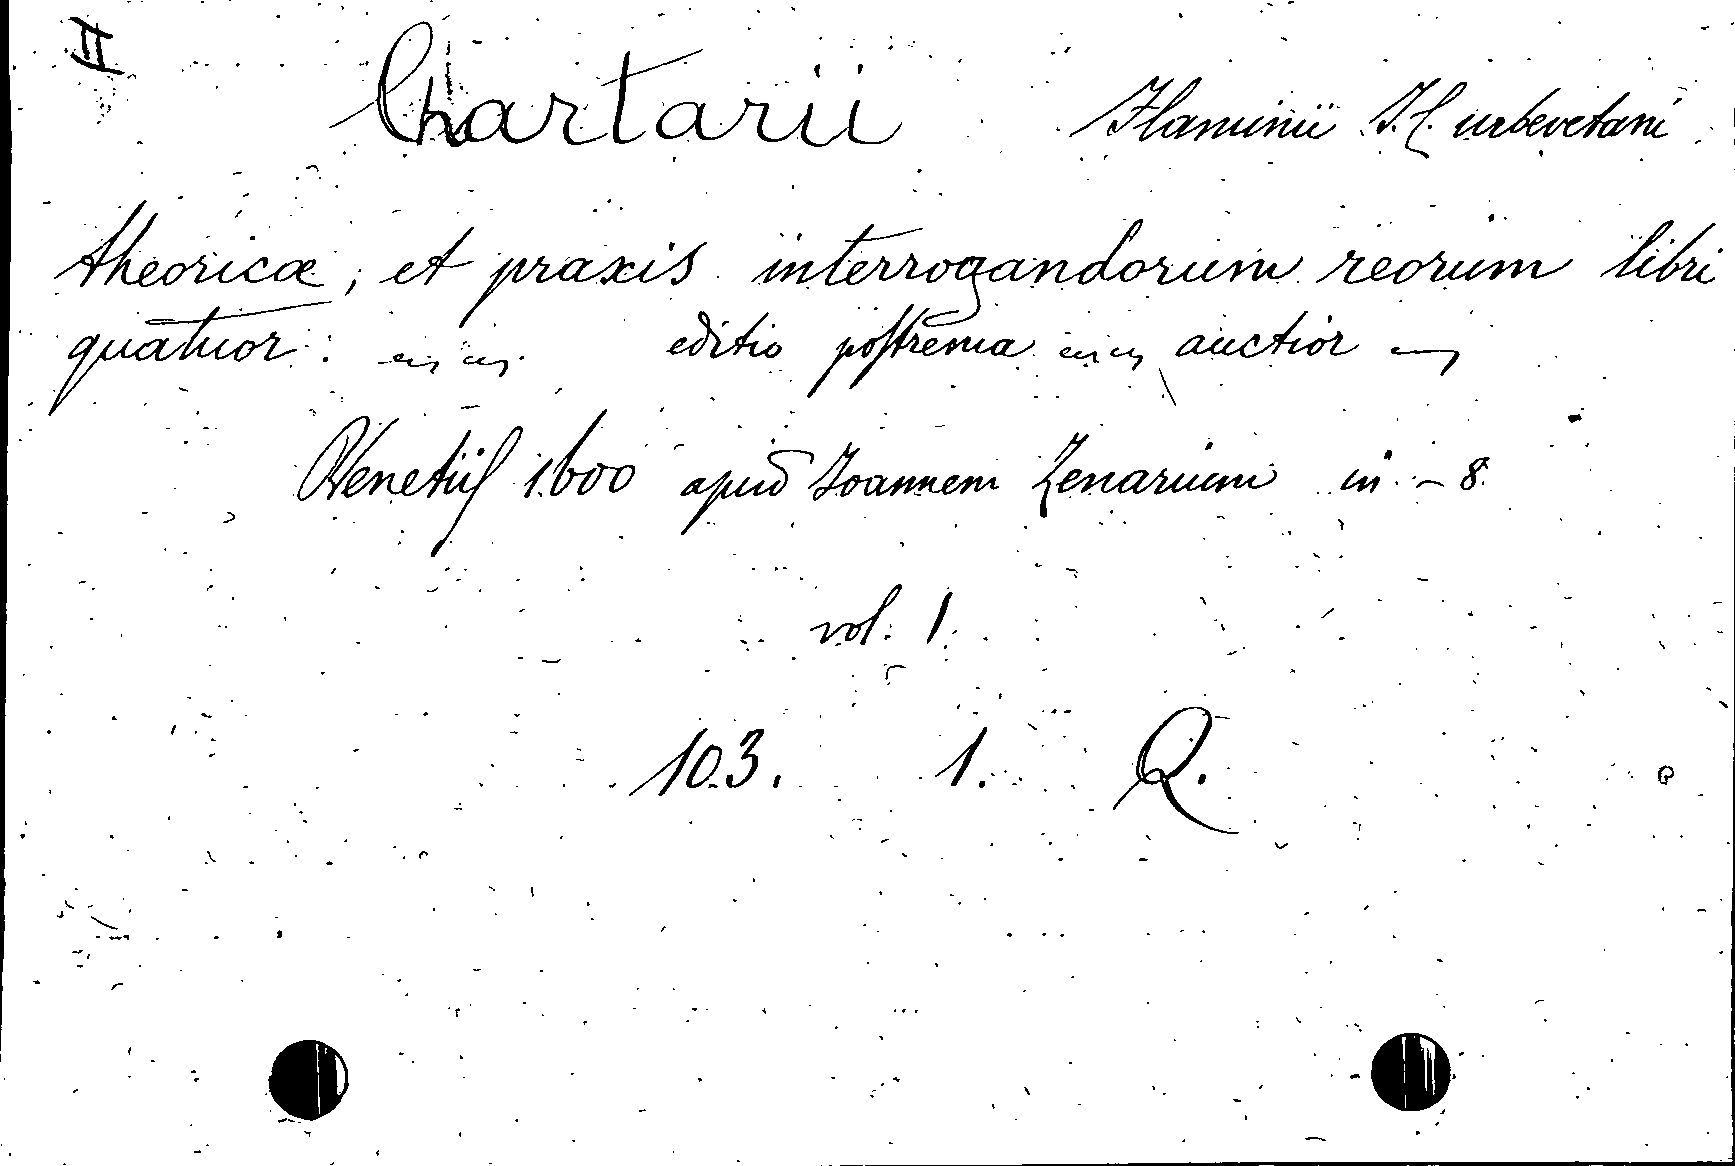 II
Chartarii Flaminii J.C. urbevetani
theoricæ, et praxis interrogandorum reorum libri
quatuor: editio postrema auctior
Venetiis 1600 apud Joannem Zenarium in - 8
vol. 1.
103. 1. Q.